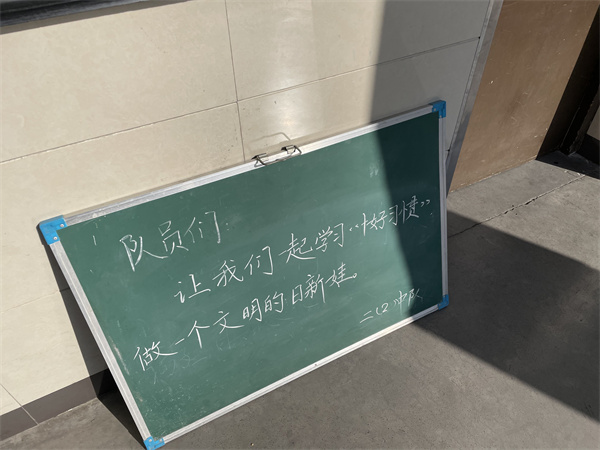 队员们
让我们一起学习“十好习惯”
做一个文明的日新娃。
二(2)中队